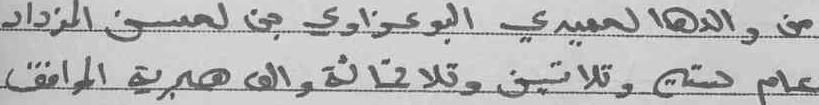 من والدها لحميدي البوعزاوي بن لحسن المزداد
عام ستة وثلاثين وثلاثمائة والف هجرية الموافق